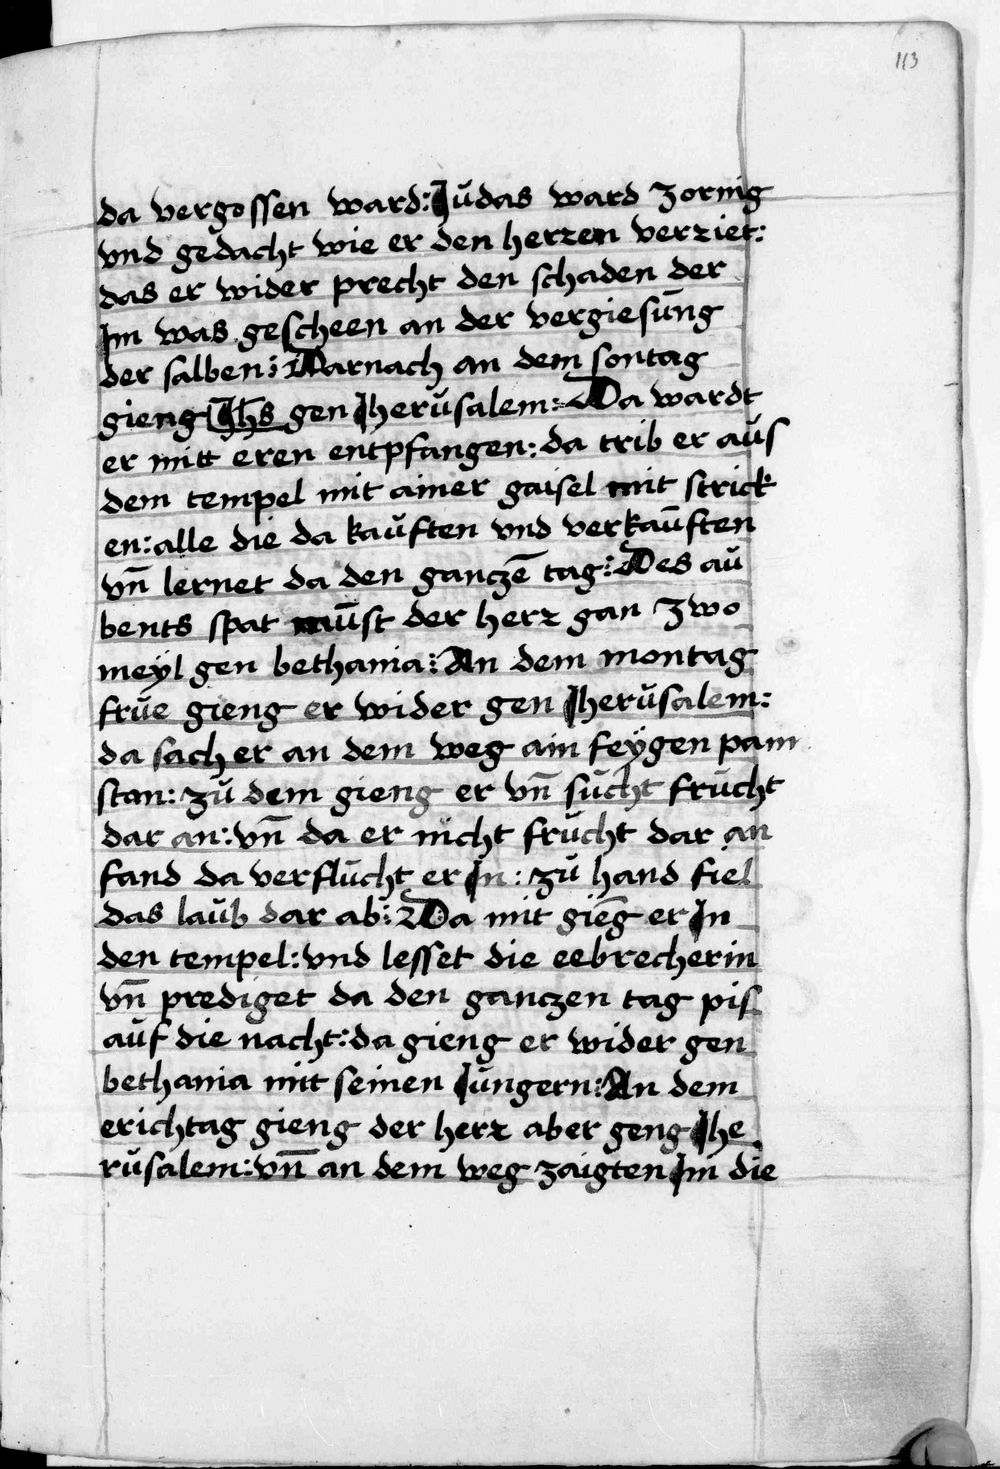 113
da vergossen ward: Jŭdas ward zornig
vnd gedacht wie er den herren verriet:
das er wider precht den schaden der
Im was gescheen an der vergiesŭng
der salben: Darnach an dem sontag
gieng Jhs gen Jherŭsalem: Da wardt
er mitt eren entpfangen: da trib er aŭs
dem tempel mit ainer gaisel mit strick
en: alle die da kaŭften vnd verkaŭften
vn̄ lernet da den gancze͞ tag: Des aŭ
bents spat mŭst der herr gan zwo
meyl gen bethania: An dem montag
frŭe gieng er wider gen Jherŭsalem:
da sach er an dem weg ain feÿgen pam
stan: zŭ dem gieng er vn̄ sŭcht frŭcht
dar an: vn̄ da er nicht frŭcht dar an
fand da verflŭcht er In: zŭ hand fiel
das laŭb dar ab: Da mit gie͞g er In
den tempel: vnd lesset die eebrecherin
vn̄ prediget da den ganczen tag pis
aŭf die nacht: da gieng er wider gen
bethania mitt seinen Jŭngern: An dem
erichtag gieng der herr aber geng Jhe
rŭsalem: vn̄ an dem weg zaigten Im die